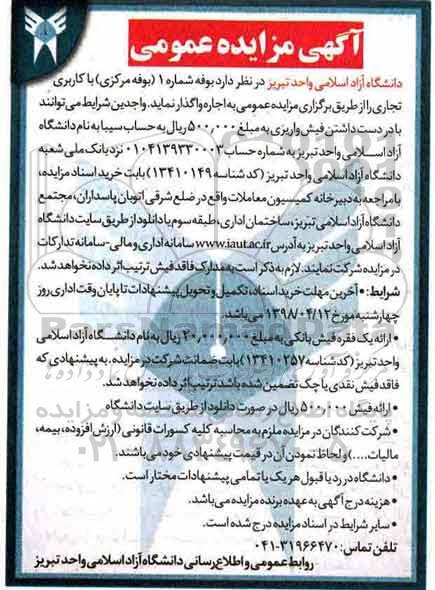 آگهی مزایده عمومی
دانشگاه آزاد اسلامی واحد تبریز در نظر دارد بوفه شماره ۱ (بوفه مرکزی) با کاربری
تجاری را از طریق برگزاری مزایده عمومی به اجاره واگذار نماید. واجدین شرایط می‌توانند
با در دست داشتن فیش واریزی به مبلغ ۵۰۰,۰۰۰ ریال به حساب سیبا به نام دانشگاه
آزاد اسلامی واحد تبریز به شماره حساب ۰۱۰۴۱۳۹۳۳۰۰۰۳ نزد بانک ملی شعبه
دانشگاه آزاد اسلامی واحد تبریز (کد شناسه ۱۳۴۱۰۱۴۹) بابت خرید اسناد مزایده،
با مراجعه به دبیرخانه کمیسیون معاملات واقع در ضلع شرقی اتوبان پاسداران، مجتمع
دانشگاه آزاد اسلامی تبریز، ساختمان اداری، طبقه سوم یا دانلود از طریق سایت دانشگاه
آزاد اسلامی واحد تبریز به آدرس www.iaut.ac.ir سامانه اداری و مالی - سامانه تدارکات
در مزایده شرکت نمایند. لازم به ذکر است به مدارک فاقد فیش ترتیب اثر داده نخواهد شد.
شرایط: • آخرین مهلت خرید اسناد، تکمیل و تحویل پیشنهادات تا پایان وقت اداری روز
چهارشنبه مورخ ۱۳۹۸/۰۴/۱۲ می‌باشد.
• ارائه یک فقره فیش بانکی به مبلغ ۲۰,۰۰۰,۰۰۰ ریال به نام دانشگاه آزاد اسلامی
واحد تبریز (کد شناسه ۱۳۴۱۰۲۵۷) بابت ضمانت شرکت در مزایده. به پیشنهادی که
فاقد فیش نقدی یا چک تضمین شده باشد ترتیب اثر داده نخواهد شد.
• ارائه فیش ۵۰۰,۰۰۰ ریال در صورت دانلود از طریق سایت دانشگاه
• شرکت کنندگان در مزایده ملزم به محاسبه کلیه کسورات قانونی (ارزش افزوده، بیمه،
مالیات....) و لحاظ نمودن آن در قیمت پیشنهادی خود می‌باشند.
• دانشگاه در رد یا قبول هر یک یا تمامی پیشنهادات مختار است.
• هزینه درج آگهی به عهده برنده مزایده می‌باشد.
• سایر شرایط در اسناد مزایده درج شده است.
تلفن تماس: ۳۱۹۶۶۴۷۰-۰۴۱
روابط عمومی و اطلاع رسانی دانشگاه آزاد اسلامی واحد تبریز